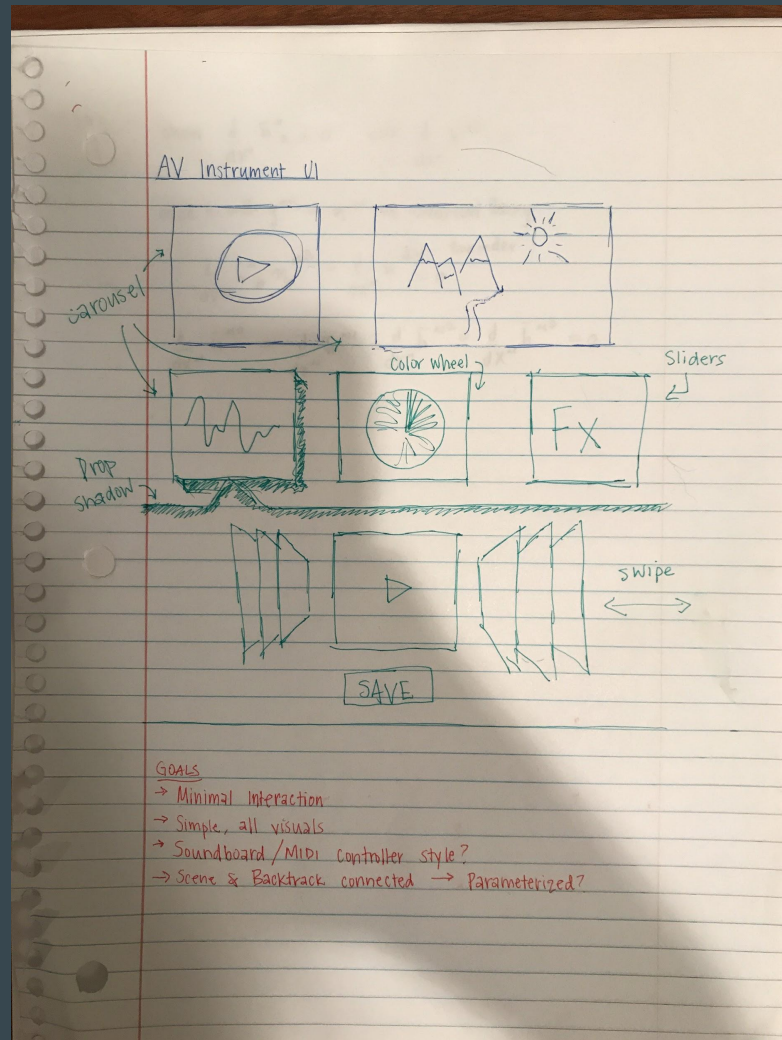 AV Instrument UI
carousel
Color wheel
Sliders
Fx
Drop
shadow
swipe
SAVE
GOALS
→ Minimal Interaction
→ Simple, all visuals
→ Soundboard / MIDI controller style?
→ Scene & Backtrack connected → Parameterized?